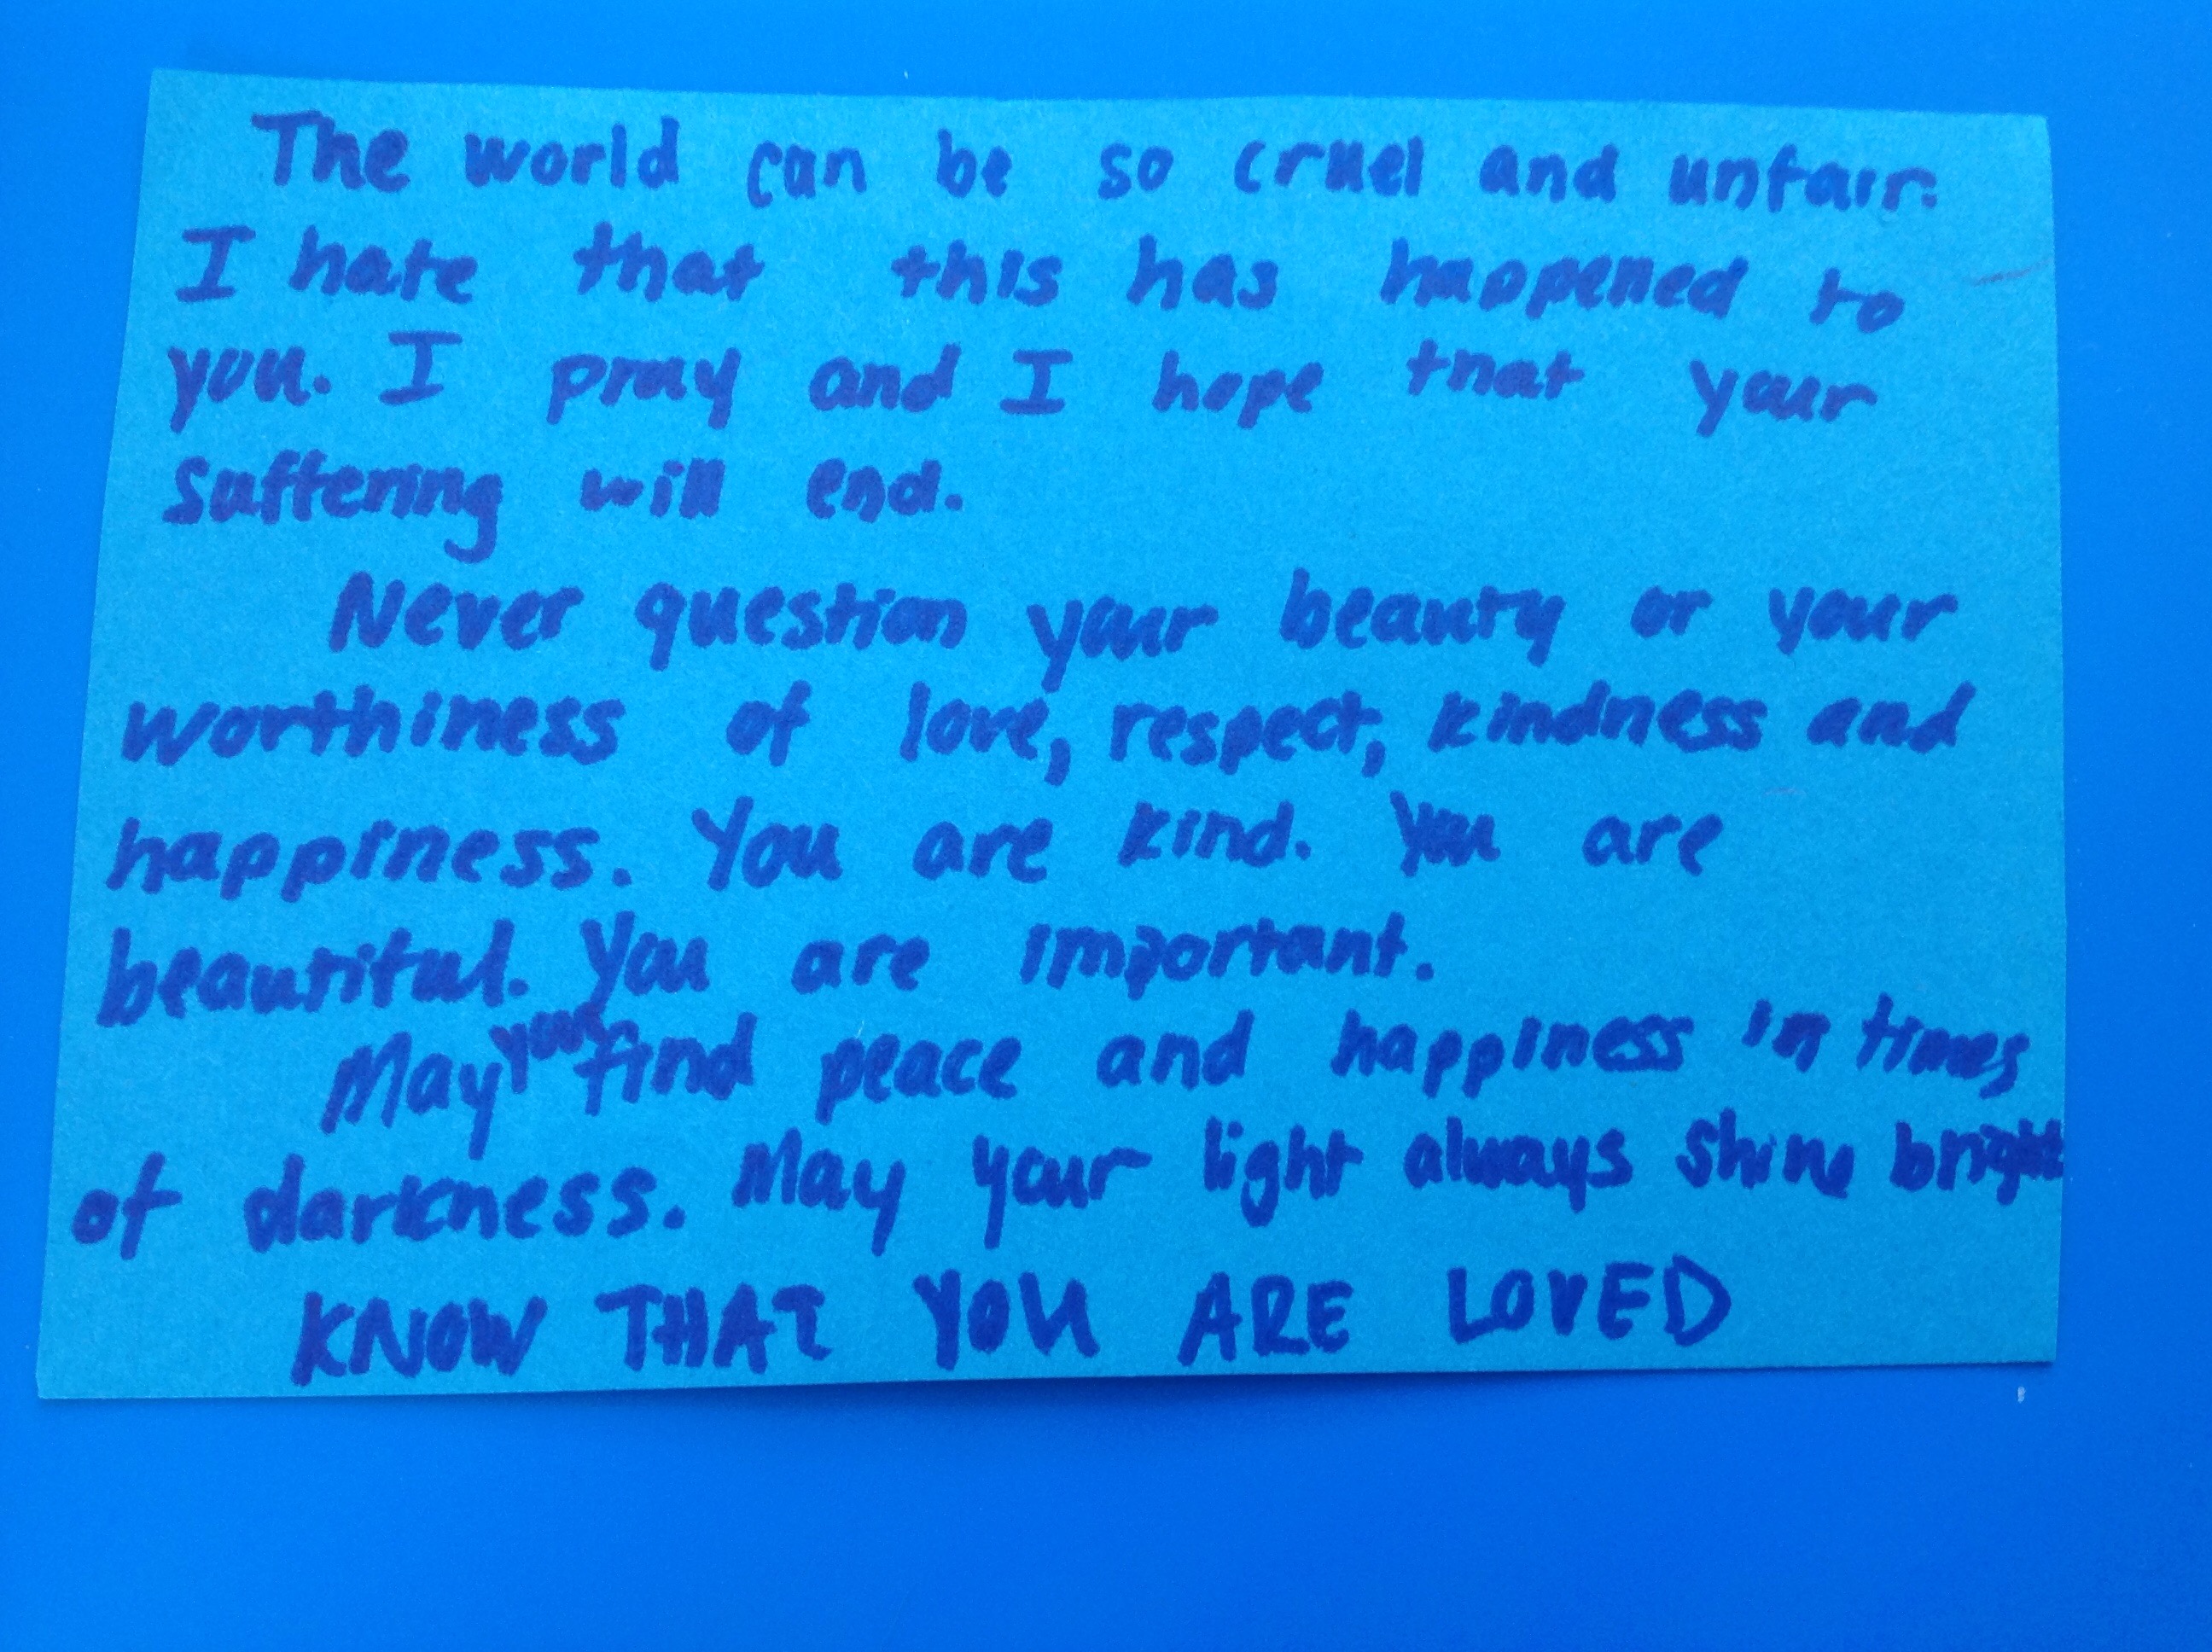 The world can be so cruel and unfair.
I hate that this has happened to
you. I pray and I hope that your
suffering will end.
Never question your beauty or your
worthiness of love, respect, kindness and
happiness. You are kind. You are
beautiful. You are important.
May you find peace and happiness in times
of darkness. May your light always shine bright
KNOW THAT YOU ARE LOVED